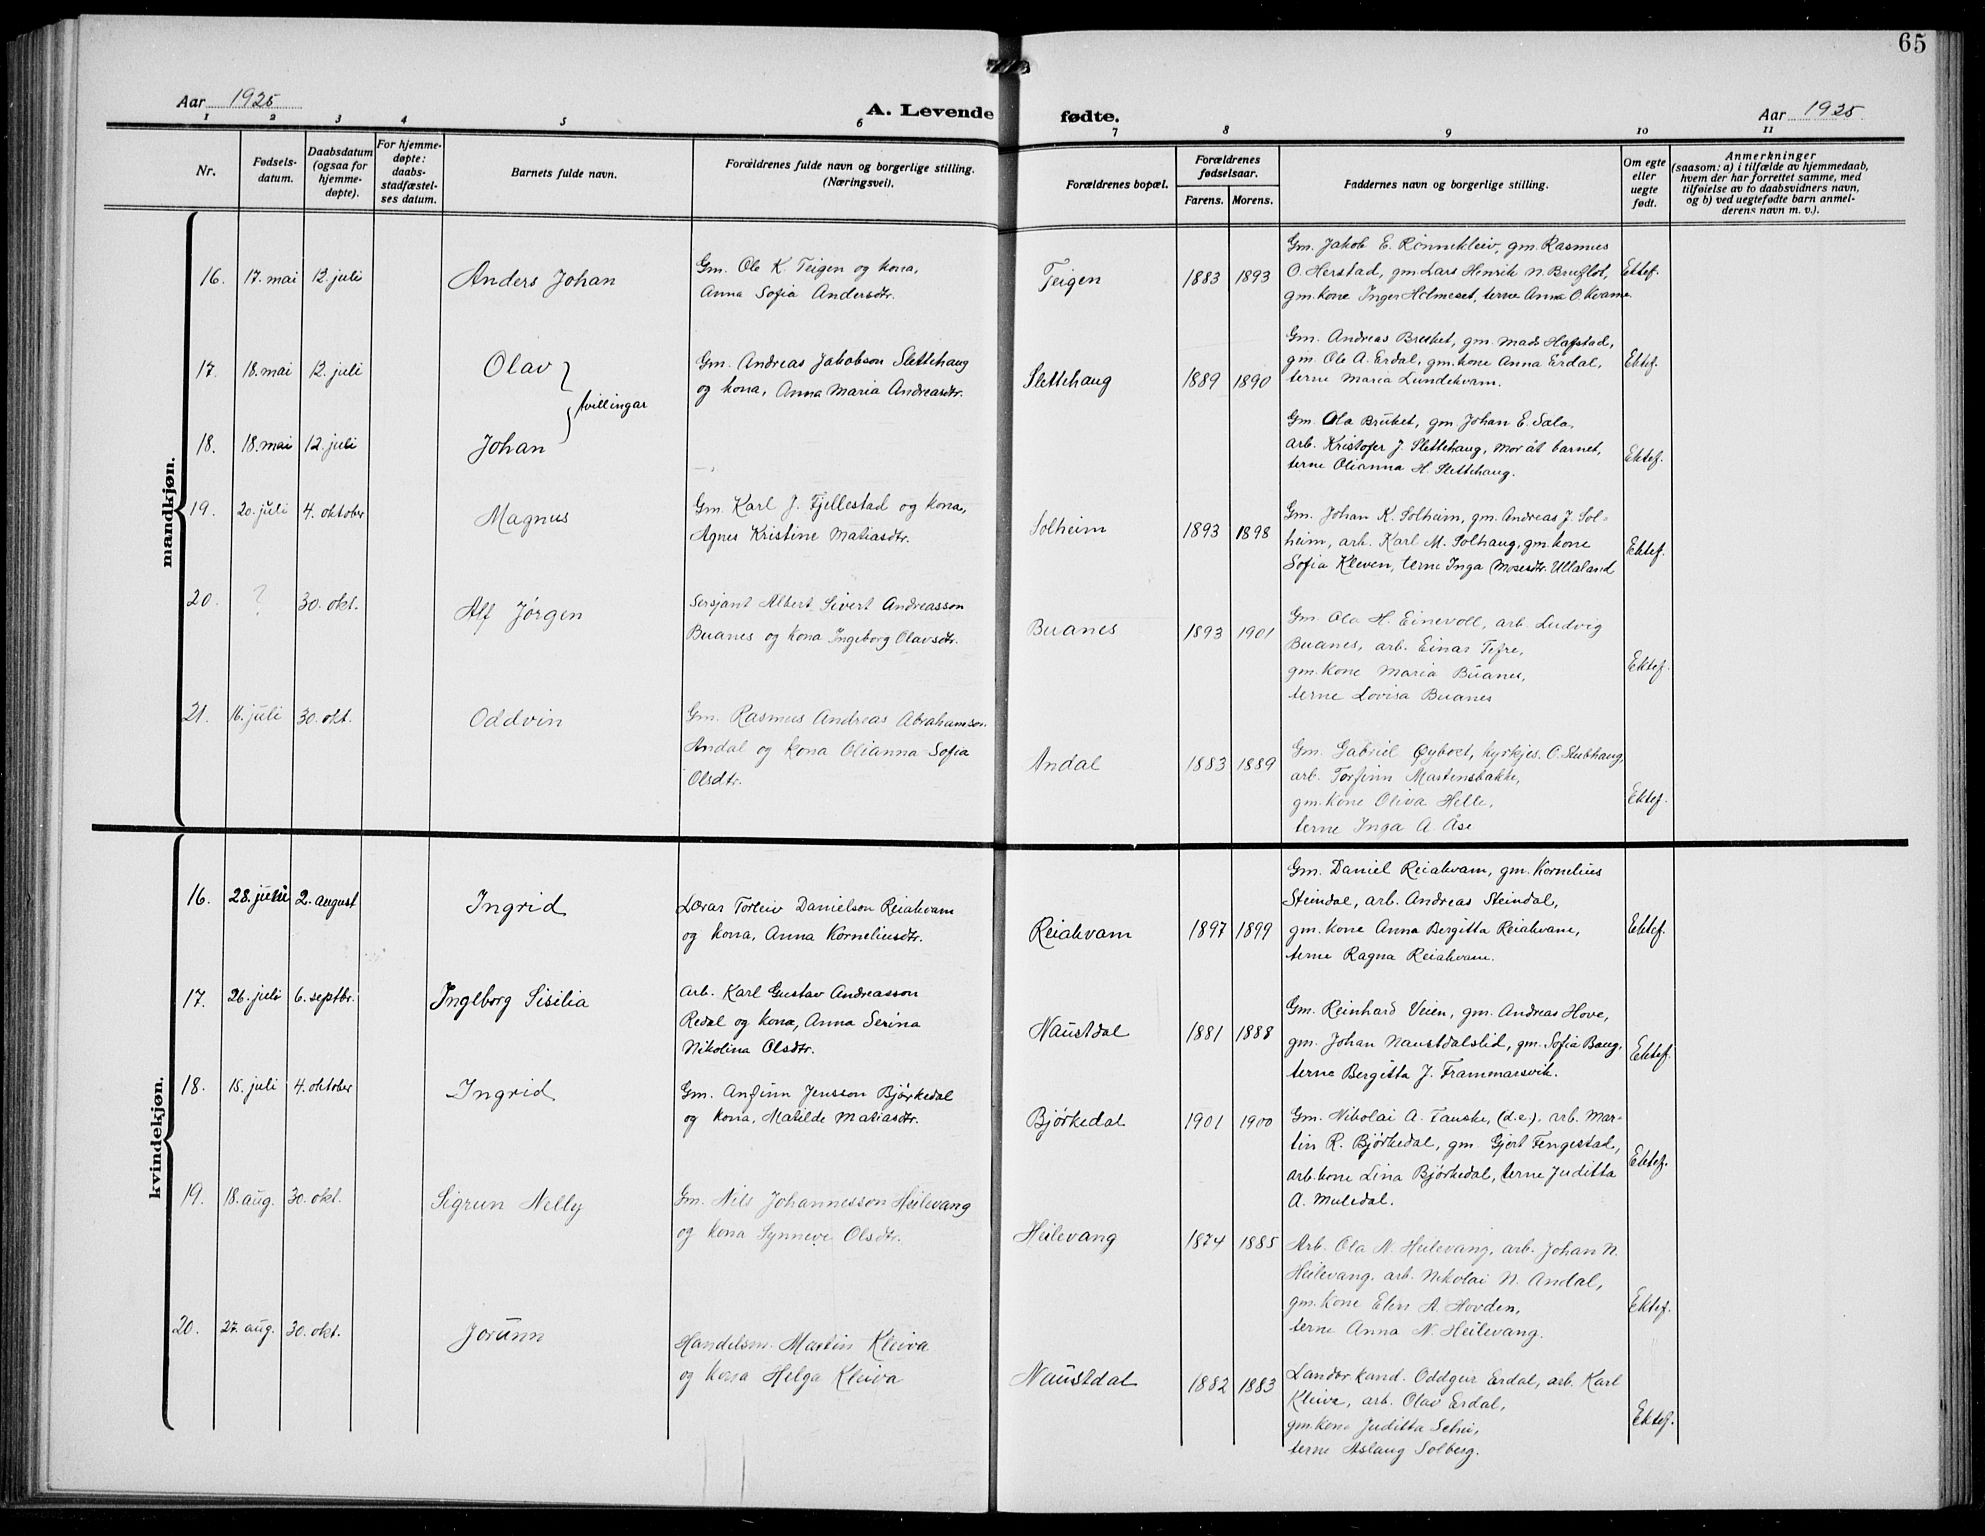 65
Aar 1925
A. Levende fødte.
Aar 1925.
1 2 3 4 5 6 7 8 9 10 11
Nr.
Fødsels-
datum.
Daabsdatum
(ogsaa for
hjemme-
døpte).
For hjemme-
døpte:
daabs-
stadfæstel-
ses datum.
Barnets fulde navn.
Forældrenes fulde navn og borgerlige stilling.
(Næringsvei).
Forældrenes bopæl.
Forældrenes
fødselsaar.
Farens. Morens.
Faddernes navn og borgerlige stilling.
Om egte
eller
uegte
født.
Anmerkninger
(saasom: a) i tilfælde av hjemmedaab,
hvem der har forrettet samme, med
tilføielse av to daabsvidners navn,
og b) ved uegtefødte barn anmel-
derens navn m. v.).
mandkjøn.
16. 17. mai 12. juli Anders Johan
Gm. Ole K. Teigen og kona,
Anna Sofia Andersdtr.
Teigen 1883 1893
Gm. Jakob E. Rønnekleiv, gm. Rasmus
O. Herstad, gm. Lars Henrik N. Bruflot,
gm. kone Inger Holmeset, terne Anna O. Kvame.
Ektef.
17. 18. mai 12. juli Olav
tvillingar
Gm. Andreas Jakobson Slettehaug
og kona, Anna Maria Andreasdtr.
Slettehaug 1889 1890
Gm. Andreas Bruket, gm. Mads Hafstad,
gm. Ole A. Erdal, gm. kone Anna Erdal,
terne Maria Lundekvam.
Ektef.
18. 18. mai 12. juli Johan
—„—
Gm. Ola Bruket, gm. Johan E. Sala,
arb. Kristofer J. Slettehaug, mor åt barnet,
terne Olianna H. Slettehaug.
Ektef.
19. 20. juli 4. oktober Magnus
Gm. Karl J. Fjellestad og kona,
Agnes Kristine Matiasdtr.
Solheim 1893 1898
Gm. Johan K. Solheim, gm. Andreas J. Sol-
heim, arb. Karl M. Solhaug, gm. kone
Sofia Kleven, terne Inga Mosesdtr. Ullaland
Ektef.
20. ? 30. okt. Alf Jørgen
Sersjant Albert Sivert Andreasson
Buanes og kona Ingeborg Olavsdtr.
Buanes 1893 1901
Gm. Ola H. Einevoll, arb. Ludvig
Buanes, arb. Einar Tefre,
gm. kone Maria Buanes,
terne Lovisa Buanes
Ektef.
21. 16. juli 30. okt. Oddvin
Gm. Rasmus Andreas Abrahamson
Andal og kona Olianna Sofia
Olsdtr.
Andal 1883 1889
Gm. Gabriel Øyboet, kyrkjes. O. Stubhaug,
arb. Torfinn Martensbakke,
gm. kone Oliva Helle,
terne Inga A. Åse
Ektef.
kvindekjøn.
16. 28. juni 2. august Ingrid
Lærar Torleiv Danielson Reiakvam
og kona, Anna Korneliusdtr.
Reiakvam 1897 1899
Gm. Daniel Reiakvam, gm. Kornelius
Steindal, arb. Andreas Steindal,
gm. kone Anna Bergitta Reiakvam,
terne Ragna Reiakvam.
Ektef.
17. 26. juli 6. septbr. Ingeborg Sisilia
Arb. Karl Gustav Andreasson
Redal og kona, Anna Serina
Nikolina Olsdtr.
Naustdal 1881 1888
Gm. Reinhard Veien, gm. Andreas Hove,
gm. Johan Naustdalslid, gm. Sofia Baug,
terne Bergitta J. Frammarsvik.
Ektef.
18. 15. juli 4. oktober Ingrid
Gm. Anfinn Jensson Bjørkedal
og kona, Matilde Matiasdtr.
Bjørkedal 1901 1900
Gm. Nikolai A. Fauske, (d.e.), arb. Mar-
tin R. Bjørkedal, gm Gjert Fengestad,
arb. kone Lina Bjørkedal, terne Juditta
A. Muledal.
Ektef.
19. 18. aug. 30. okt. Sigrun Nelly
Gm. Nils Johannesson Heilevang
og kona Synneve Olsdtr.
Heilevang 1874 1885
Arb. Ola N. Heilevang, arb. Johan N.
Heilevang, arb. Nikolai N. Andal,
gm. kone Elen A. Hovden,
terne Anna N. Heilevang.
Ektef.
20. 27. aug. 30. okt. Jorunn
Handelsm. Martin Kleiva
og kona Helga Kleiva
Naustdal 1882 1883
Landbr. kand. Oddgeir Erdal, arb. Karl
Kleiva, arb. Olav Erdal,
gm. kone Juditta Selvi,
terne Aslaug Solberg.
Ektef.